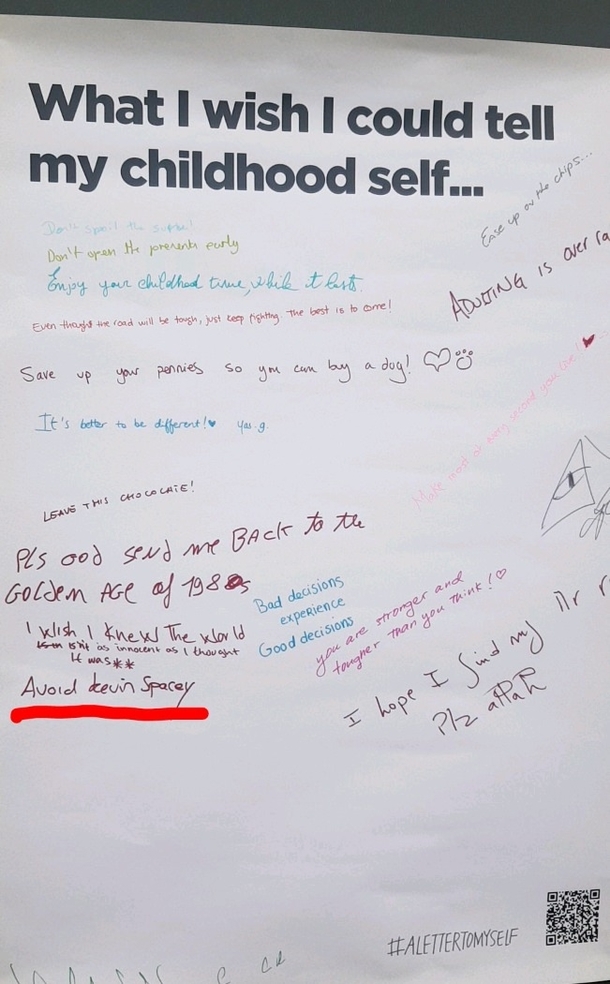 What I wish I could tell
my childhood self...
Ease up on the chips...
Don't spoil the
Don't open the presents early
ADULTING is over ra
Enjoy your childhood time, while it lasts.
Even thought the road will be tough, just keep fighting. The best is to come!
Save up your pennies so you can buy a dog!
Make most of every second you live!
It's better to be different! Yas.g.
LEAVE THIS CHOCOLATE!
Pls god send me BACK to the
GOLDEN AGE of 1980s
Bad decisions
experience
Good decisions
you are stronger and
tougher than you think!
I Wish I Knew The World
isn't as innocent as I thought
it was**
I hope I find my Mr r
Plz allah
Avoid kevin Spacey
#ALETTERTOMYSELF